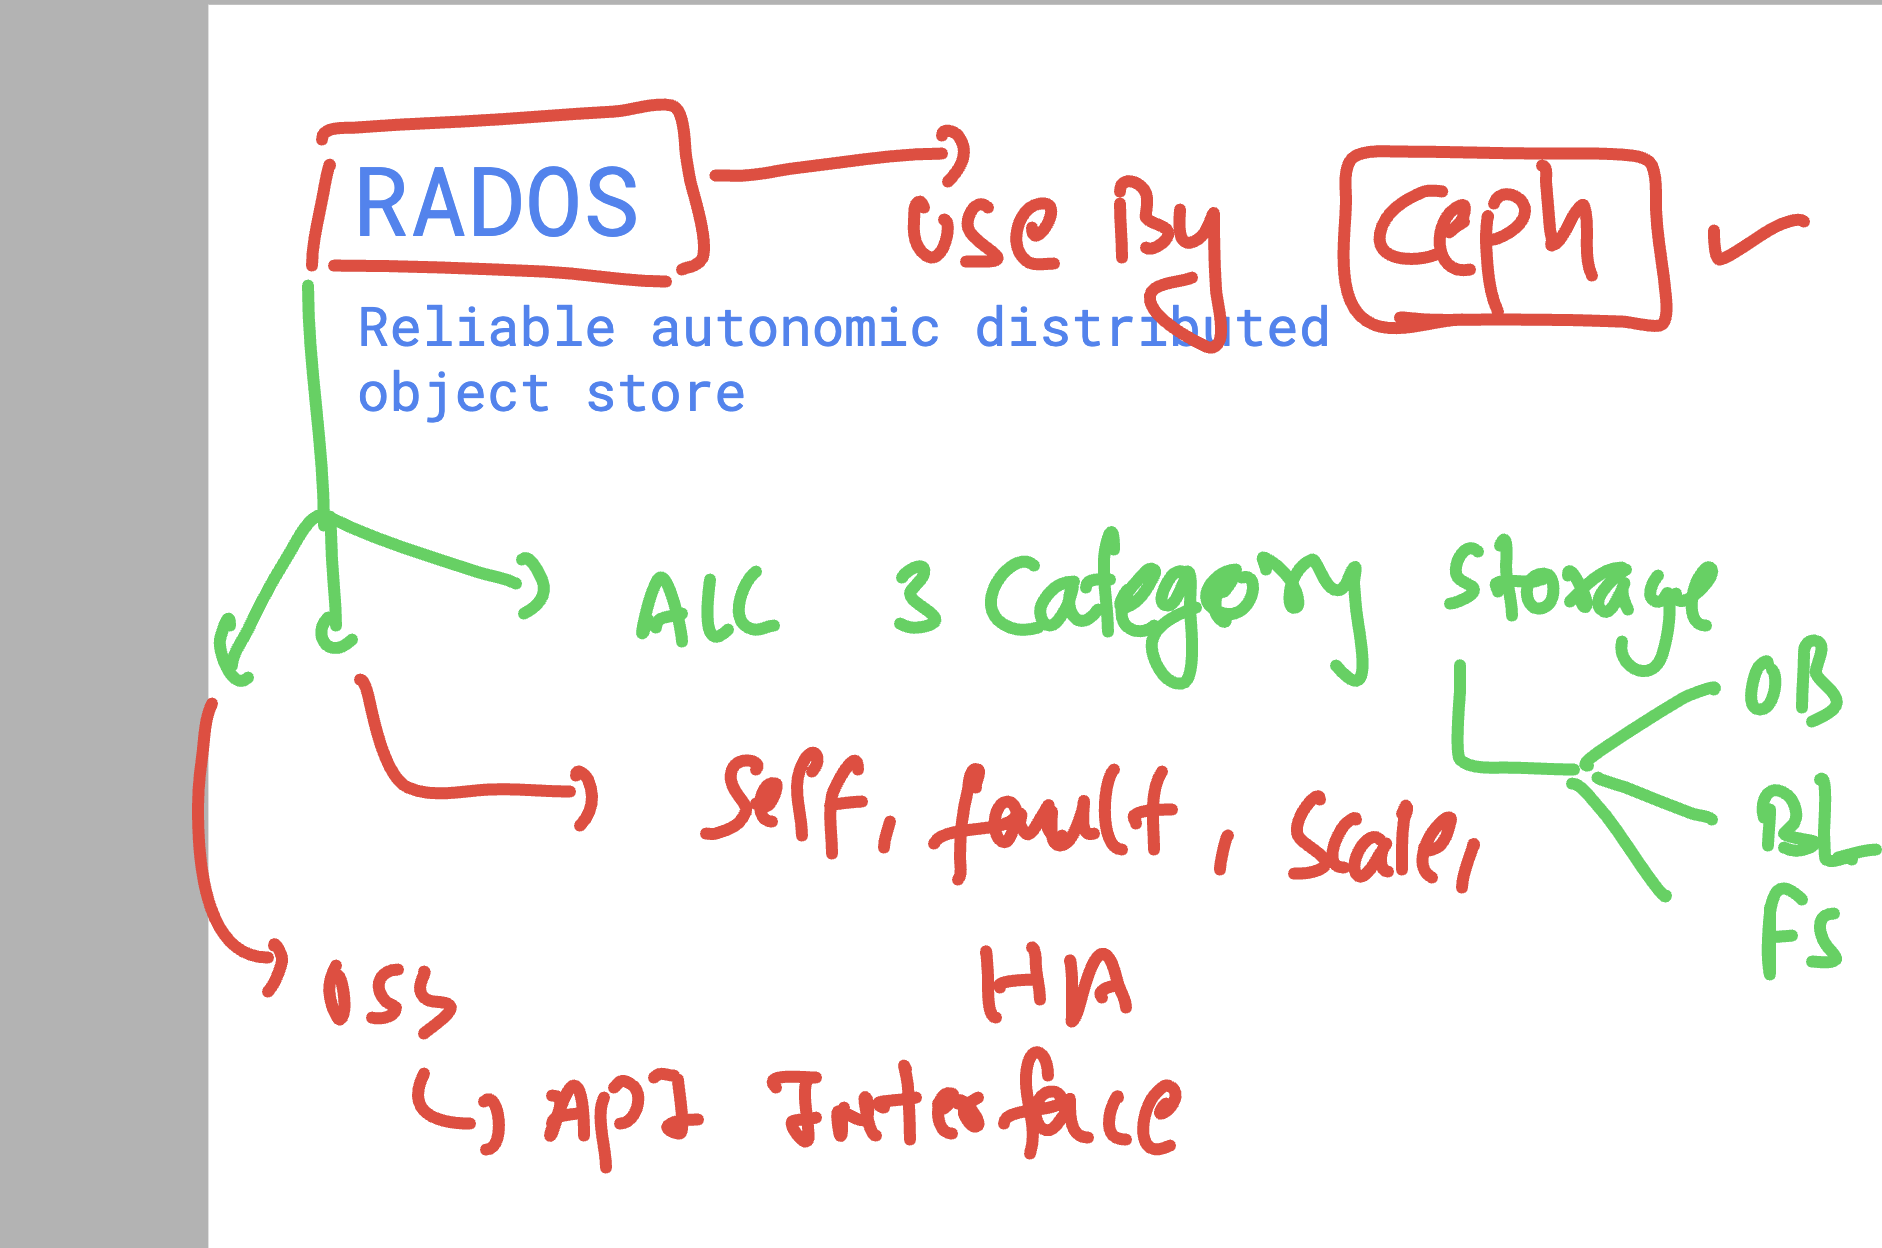 RADOS
Use By Ceph
Reliable autonomic distributed
object store
All 3 Category Storage
OB
BL
FS
Self, fault, Scale,
HA
OSS
API Interface